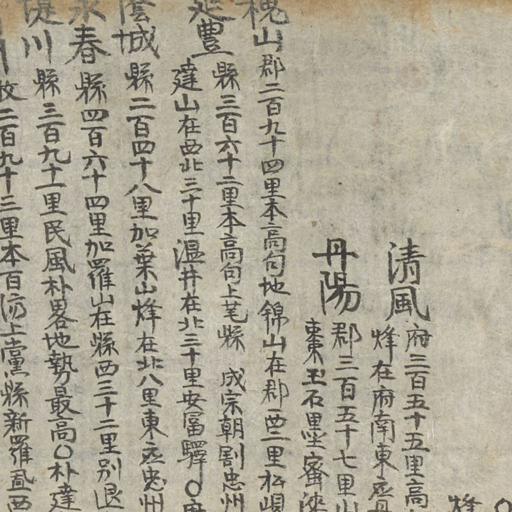 〇
烽
清風府三百五十五里高
烽在府南東丞丹
丹陽郡三百五十七里山
東玉石里坐齊
槐山郡二百九十四里本高句地錦山在郡西二里松峴
延豊縣三百六十二里本高句上芼縣 成宗朝割忠州
達山在西北三十里温井在北三十里安富驛〇
陰城縣二百四十八里加葉山烽在北八里東丞忠州
永春縣四百六十四里加羅山在縣西三十二里別退
堤川縣三百九十一里民風朴畧地勢最高〇朴達
牧二百九十三里本百済上黨縣新羅置西